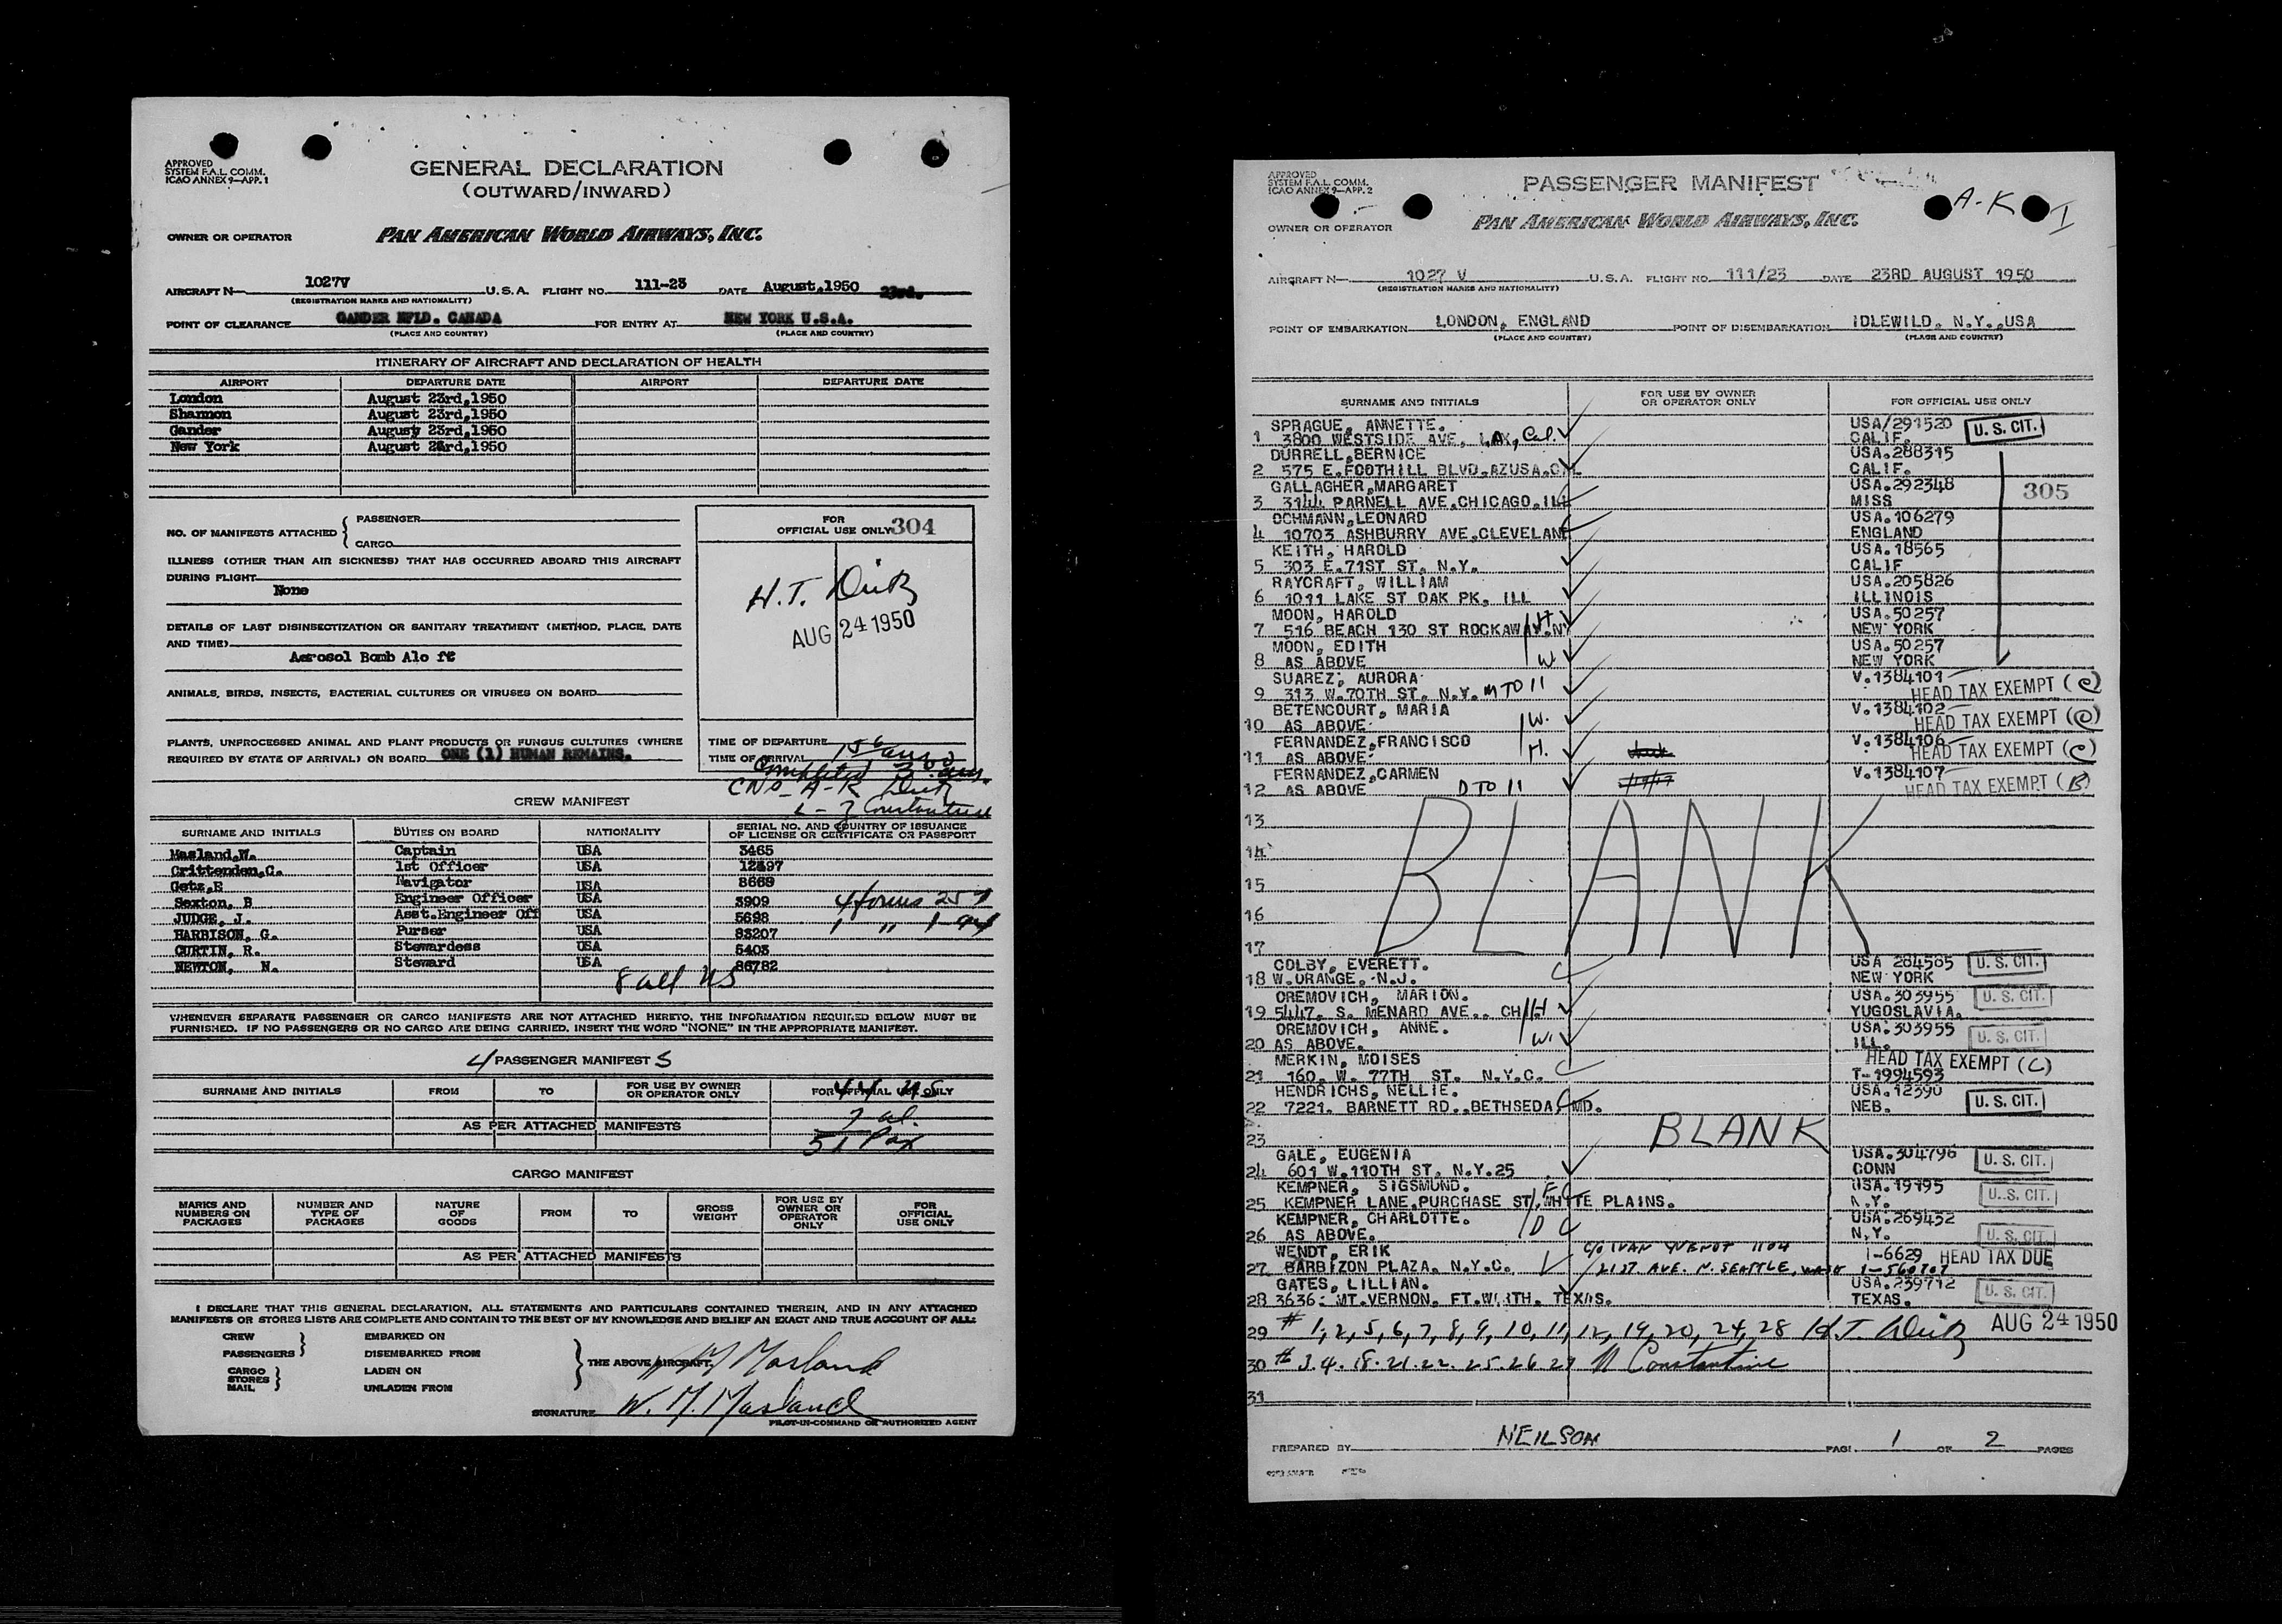 APPROVED
SYSTEM F.A.L. COMM.
ICAO ANNEX 9—APP. 1
GENERAL DECLARATION
(OUTWARD/INWARD)
OWNER OR OPERATOR
PAN AMERICAN WORLD AIRWAYS, INC.
AIRCRAFT N— 1027V U.S.A. FLIGHT NO. 111-23 DATE August,1950 23rd.
(REGISTRATION MARKS AND NATIONALITY)
POINT OF CLEARANCE GANDER NFLD. CANADA FOR ENTRY AT NEW YORK U.S.A.
(PLACE AND COUNTRY) (PLACE AND COUNTRY)
ITINERARY OF AIRCRAFT AND DECLARATION OF HEALTH
AIRPORT DEPARTURE DATE AIRPORT DEPARTURE DATE
London August 23rd,1950
Shannon August 23rd,1950
Gander August 23rd,1950
New York August 23rd,1950
NO. OF MANIFESTS ATTACHED { PASSENGER
CARGO
FOR
OFFICIAL USE ONLY 304
ILLNESS (OTHER THAN AIR SICKNESS) THAT HAS OCCURRED ABOARD THIS AIRCRAFT
DURING FLIGHT
None
H.T. Dietz
AUG 24 1950
DETAILS OF LAST DISINSECTIZATION OR SANITARY TREATMENT (METHOD, PLACE, DATE
AND TIME)
Aerosol Bomb Alo ft
ANIMALS, BIRDS, INSECTS, BACTERIAL CULTURES OR VIRUSES ON BOARD
PLANTS, UNPROCESSED ANIMAL AND PLANT PRODUCTS OR FUNGUS CULTURES (WHERE
REQUIRED BY STATE OF ARRIVAL) ON BOARD ONE (1) HUMAN REMAINS.
TIME OF DEPARTURE
TIME OF ARRIVAL
Completed 3:00 am.
A-K Dietz
L-Z Constantine
CREW MANIFEST
SURNAME AND INITIALS DUTIES ON BOARD NATIONALITY SERIAL NO. AND COUNTRY OF ISSUANCE
OF LICENSE OR CERTIFICATE OR PASSPORT
Masland,W. Captain USA 3465
Crittenden,C. 1st Officer USA 12397
Getz,E Navigator USA 8669
Sexton, B Engineer Officer USA 3909 4 forms 257
JUDGE, J. Asst.Engineer Off USA 5698 1 " 1-94
HARBISON, G. Purser USA 83207
CURTIN, R. Stewardess USA 5403
NEWTON, N. Steward USA 86782
8 all US
WHENEVER SEPARATE PASSENGER OR CARGO MANIFESTS ARE NOT ATTACHED HERETO, THE INFORMATION REQUIRED BELOW MUST BE
FURNISHED. IF NO PASSENGERS OR NO CARGO ARE BEING CARRIED, INSERT THE WORD "NONE" IN THE APPROPRIATE MANIFEST.
4 PASSENGER MANIFEST S
SURNAME AND INITIALS FROM TO FOR USE BY OWNER
OR OPERATOR ONLY FOR OFFICIAL USE ONLY
44 US
7 al.
AS PER ATTACHED MANIFESTS
51 Pax
CARGO MANIFEST
MARKS AND
NUMBERS ON
PACKAGES NUMBER AND
TYPE OF
PACKAGES NATURE
OF
GOODS FROM TO GROSS
WEIGHT FOR USE BY
OWNER OR
OPERATOR
ONLY FOR
OFFICIAL
USE ONLY
AS PER ATTACHED MANIFESTS
I DECLARE THAT THIS GENERAL DECLARATION, ALL STATEMENTS AND PARTICULARS CONTAINED THEREIN, AND IN ANY ATTACHED
MANIFESTS OR STORES LISTS ARE COMPLETE AND CONTAIN TO THE BEST OF MY KNOWLEDGE AND BELIEF AN EXACT AND TRUE ACCOUNT OF ALL:
CREW
PASSENGERS } EMBARKED ON
DISEMBARKED FROM
CARGO
STORES
MAIL } LADEN ON
UNLADEN FROM
} THE ABOVE AIRCRAFT. W M Masland
SIGNATURE W. M. Masland
PILOT-IN-COMMAND OR AUTHORIZED AGENT
APPROVED
SYSTEM F.A.L. COMM.
ICAO ANNEX 9—APP. 2
PASSENGER MANIFEST
A-K I
OWNER OR OPERATOR
PAN AMERICAN WORLD AIRWAYS, INC.
AIRCRAFT N— 1027 V U.S.A. FLIGHT NO. 111/23 DATE 23RD AUGUST 1950
(REGISTRATION MARKS AND NATIONALITY)
POINT OF EMBARKATION LONDON, ENGLAND POINT OF DISEMBARKATION IDLEWILD, N.Y.,USA
(PLACE AND COUNTRY) (PLACE AND COUNTRY)
SURNAME AND INITIALS FOR USE BY OWNER
OR OPERATOR ONLY FOR OFFICIAL USE ONLY
SPRAGUE, ANNETTE. USA/291520
1 3800 WESTSIDE AVE, LA, Cal. CALIF. U. S. CIT.
DURRELL,BERNICE USA.288315
2 575 E.FOOTHILL BLVD.AZUSA.CAL CALIF.
GALLAGHER,MARGARET USA.292348
3 3144 PARNELL AVE.CHICAGO.ILL MISS 305
OCHMANN,LEONARD USA.106279
4 10703 ASHBURRY AVE.CLEVELAND ENGLAND
KEITH, HAROLD USA.18565
5 303 E.71ST ST. N.Y. CALIF
RAYCRAFT, WILLIAM USA.205826
6 1011 LAKE ST OAK PK, ILL ILLINOIS
MOON, HAROLD USA.50257
7 516 BEACH 130 ST ROCKAWAY.NY H NEW YORK
MOON, EDITH USA.50257
8 AS ABOVE W NEW YORK
SUAREZ, AURORA V.1384101
9 313 W.70TH ST. N.Y. M TO 11 HEAD TAX EXEMPT (C)
BETENCOURT, MARIA V.1384102
10 AS ABOVE W. HEAD TAX EXEMPT (C)
FERNANDEZ,FRANCISCO V.1384106
11 AS ABOVE H. HEAD TAX EXEMPT (C)
FERNANDEZ,CARMEN V.1384107
12 AS ABOVE D TO 11 HEAD TAX EXEMPT (B)
13
14
15
BLANK
16
17
COLBY, EVERETT. USA 284585 U. S. CIT.
18 W.ORANGE, N.J. NEW YORK
OREMOVICH, MARION. USA.303955 U. S. CIT.
19 5447. S. MENARD AVE.. CH H YUGOSLAVIA.
OREMOVICH, ANNE. USA.303955 U. S. CIT.
20 AS ABOVE. W. ILL.
MERKIN, MOISES HEAD TAX EXEMPT (C)
21 160. W. 77TH ST. N.Y.C. T-1994593
HENDRICHS, NELLIE. USA.12390
22 7221. BARNETT RD..BETHSEDA, MD. NEB. U. S. CIT.
23 BLANK
GALE, EUGENIA USA.304796
24 601 W.110TH ST. N.Y.25 CONN U. S. CIT.
KEMPNER, SIGSMUND. F USA.19195
25 KEMPNER LANE,PURCHASE ST,WHITE PLAINS. N.Y. U. S. CIT.
KEMPNER, CHARLOTTE. D USA.269432
26 AS ABOVE. N.Y. U. S. CIT.
WENDT, ERIK c/o IVAN WENDT 1104 1-6629 HEAD TAX DUE
27 BARBIZON PLAZA. N.Y.C. 21ST. AVE. N. SEATTLE, WASH
GATES, LILLIAN. USA.239712
28 3636. MT.VERNON. FT.WORTH. TEXAS. TEXAS. U. S. CIT.
29 # 1, 2, 5, 6, 7, 8, 9, 10, 11, 12, 19, 20, 24, 28 H.T. Dietz AUG 24 1950
30 # 3.4.18.21.22.25.26.27 N Constantine
31
PREPARED BY NEILSON PAGE 1 OF 2 PAGES